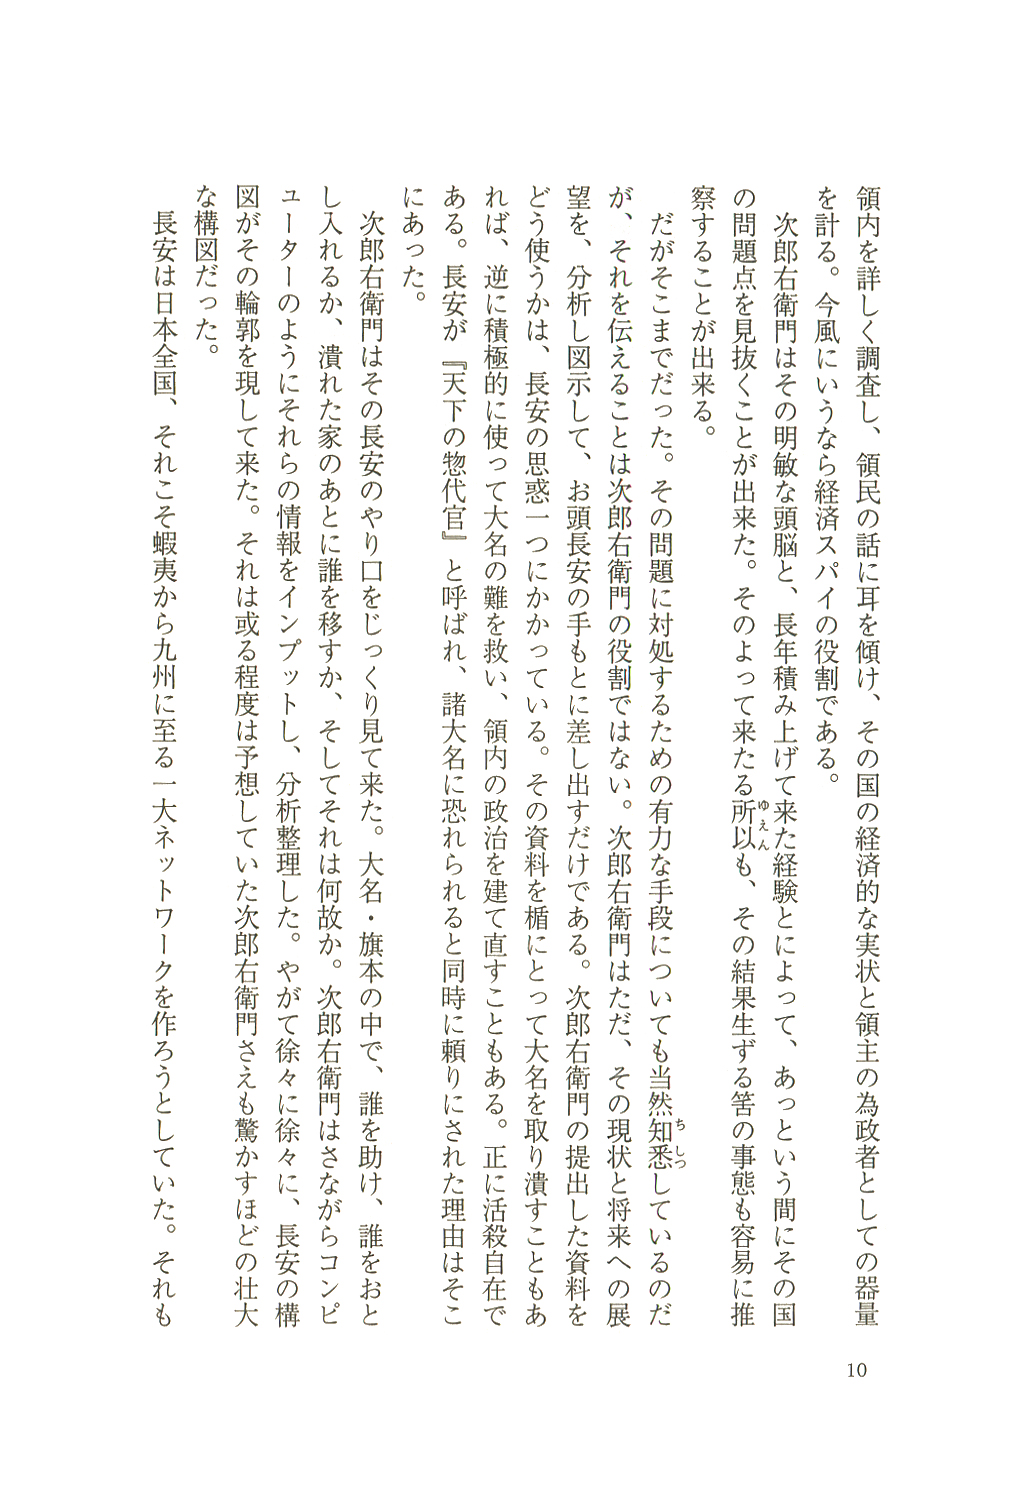 領内を詳しく調査し、領民の話に耳を傾け、その国の経済的な実状と領主の為政者としての器量
を計る。今風にいうなら経済スパイの役割である。
　次郎右衛門はその明敏な頭脳と、長年積み上げて来た経験とによって、あっという間にその国
の問題点を見抜くことが出来た。そのよって来たる所以も、その結果生ずる筈の事態も容易に推
ゆえん
察することが出来る。
　だがそこまでだった。その問題に対処するための有力な手段についても当然知悉しているのだ
ちしつ
が、それを伝えることは次郎右衛門の役割ではない。次郎右衛門はただ、その現状と将来への展
望を、分析し図示して、お頭長安の手もとに差し出すだけである。次郎右衛門の提出した資料を
どう使うかは、長安の思惑一つにかかっている。その資料を楯にとって大名を取り潰すこともあ
れば、逆に積極的に使って大名の難を救い、領内の政治を建て直すこともある。正に活殺自在で
ある。長安が『天下の惣代官』と呼ばれ、諸大名に恐れられると同時に頼りにされた理由はそこ
にあった。
　次郎右衛門はその長安のやり口をじっくり見て来た。大名・旗本の中で、誰を助け、誰をおと
し入れるか、潰れた家のあとに誰を移すか、そしてそれは何故か。次郎右衛門はさながらコンピ
ューターのようにそれらの情報をインプットし、分析整理した。やがて徐々に徐々に、長安の構
図がその輪郭を現して来た。それは或る程度は予想していた次郎右衛門さえも驚かすほどの壮大
な構図だった。
　長安は日本全国、それこそ蝦夷から九州に至る一大ネットワークを作ろうとしていた。それも
10